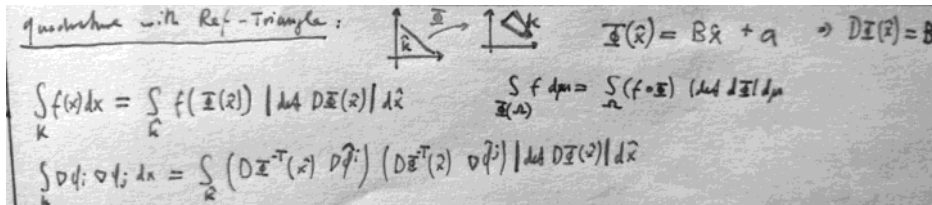 quadrature with Ref-Triangle: K̂ Φ K Φ(x̂) = Bx̂ + a ⇒ DΦ(x̂) = B
∫_K f(x) dx = ∫_K̂ f(Φ(x̂)) |det DΦ(x̂)| dx̂ ∫_Φ(Ω) f dμ = ∫_Ω (f∘Φ) |det dΦ| dμ
∫_K ∇φ_i ∇φ_j dx = ∫_K̂ (DΦ^-T(x̂) ∇φ̂_i) (DΦ^-T(x̂) ∇φ̂_j) |det DΦ(x̂)| dx̂